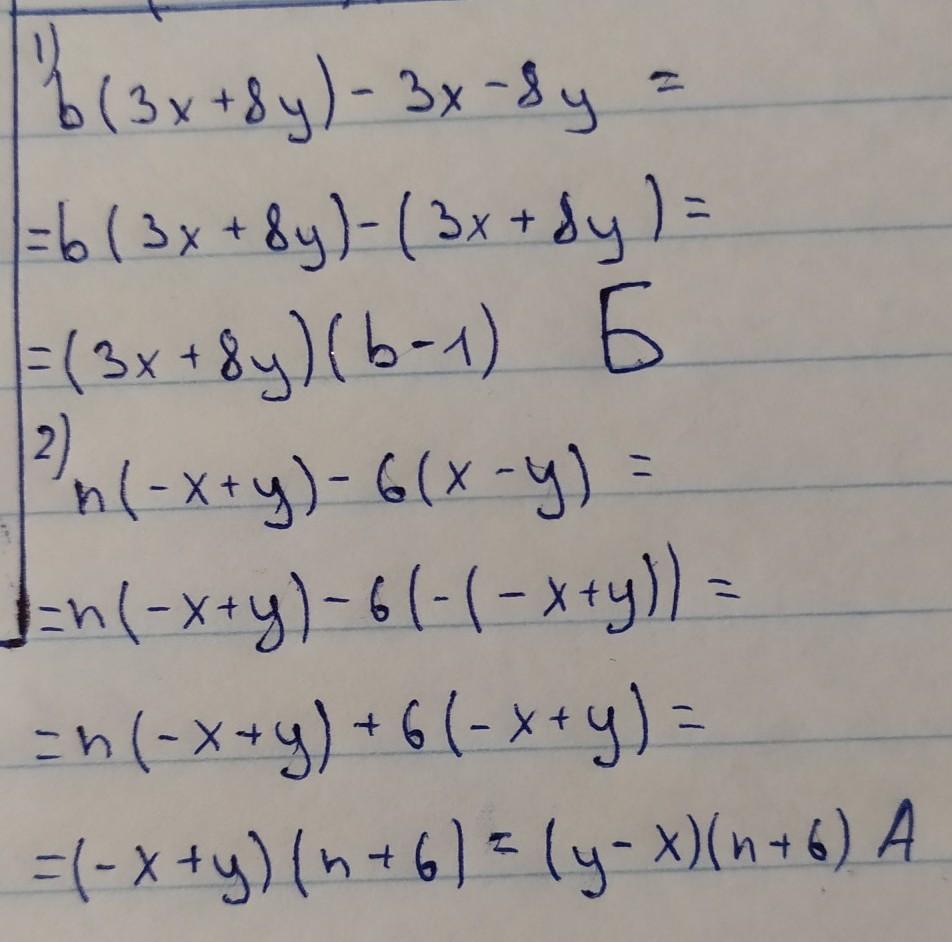 1)
b(3x+8y)-3x-8y =
=b(3x+8y)-(3x+8y)=
=(3x+8y)(b-1) Б
2)
n(-x+y)-6(x-y)=
=n(-x+y)-6(-(-x+y))=
=n(-x+y)+6(-x+y)=
=(-x+y)(n+6)=(y-x)(n+6) A